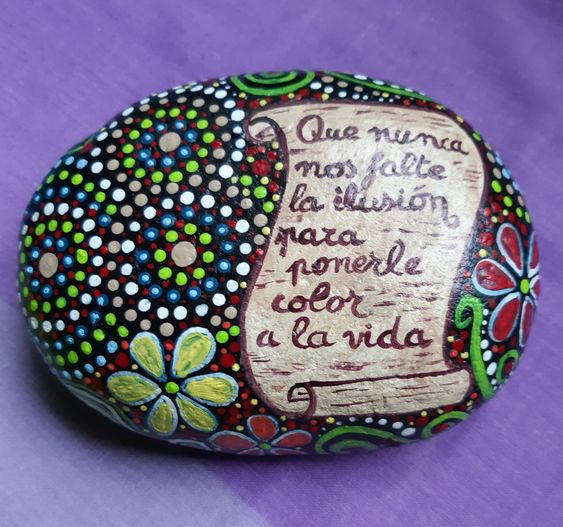 Que nunca
nos falte
la ilusión
para
ponerle
color
a la vida